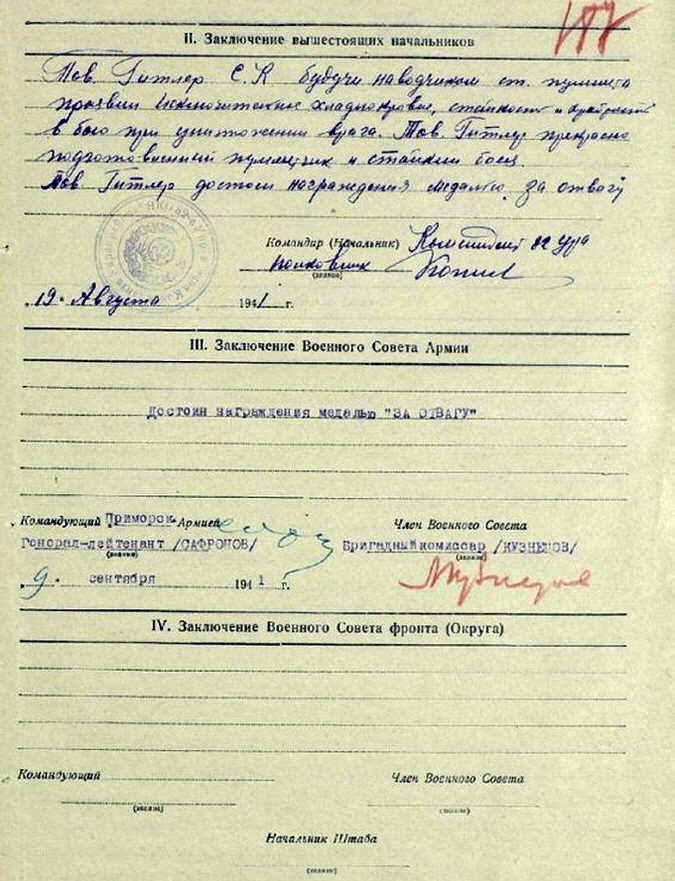 187
II. Заключение вышестоящих начальников
Тов. Гитлер С.К будучи наводчиком ст. пулемета
проявил исключительное хладнокровие, стойкость и храбрость
в бою при уничтожении врага. Тов. Гитлер прекрасно
подготовленный пулеметчик и стойкий боец.
Тов. Гитлер достоин награждения медалью за отвагу
Командир (Начальник) Комендант 82 Ура
полковник
(звание)
19. Августа 1941 г.
III. Заключение Военного Совета Армии
достоин награждения медалью "ЗА ОТВАГУ"
Командующий Приморск. Армией
Член Военного Совета
Генерал-лейтенант /САФРОНОВ/
Бригадный комиссар /КУЗНЕЦОВ/
(звание)
(звание)
9. сентября 1941 г.
IV. Заключение Военного Совета фронта (Округа)
Командующий
Член Военного Совета
(звание)
(звание)
Начальник Штаба
(звание)